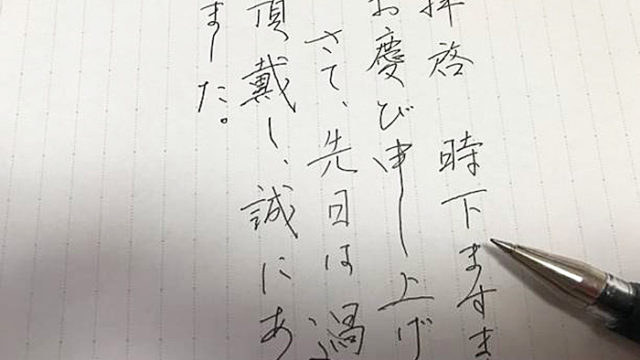 拝啓　時下ますま
お慶び申し上げ
さて、先日は過
頂戴し、誠にあ
ました。